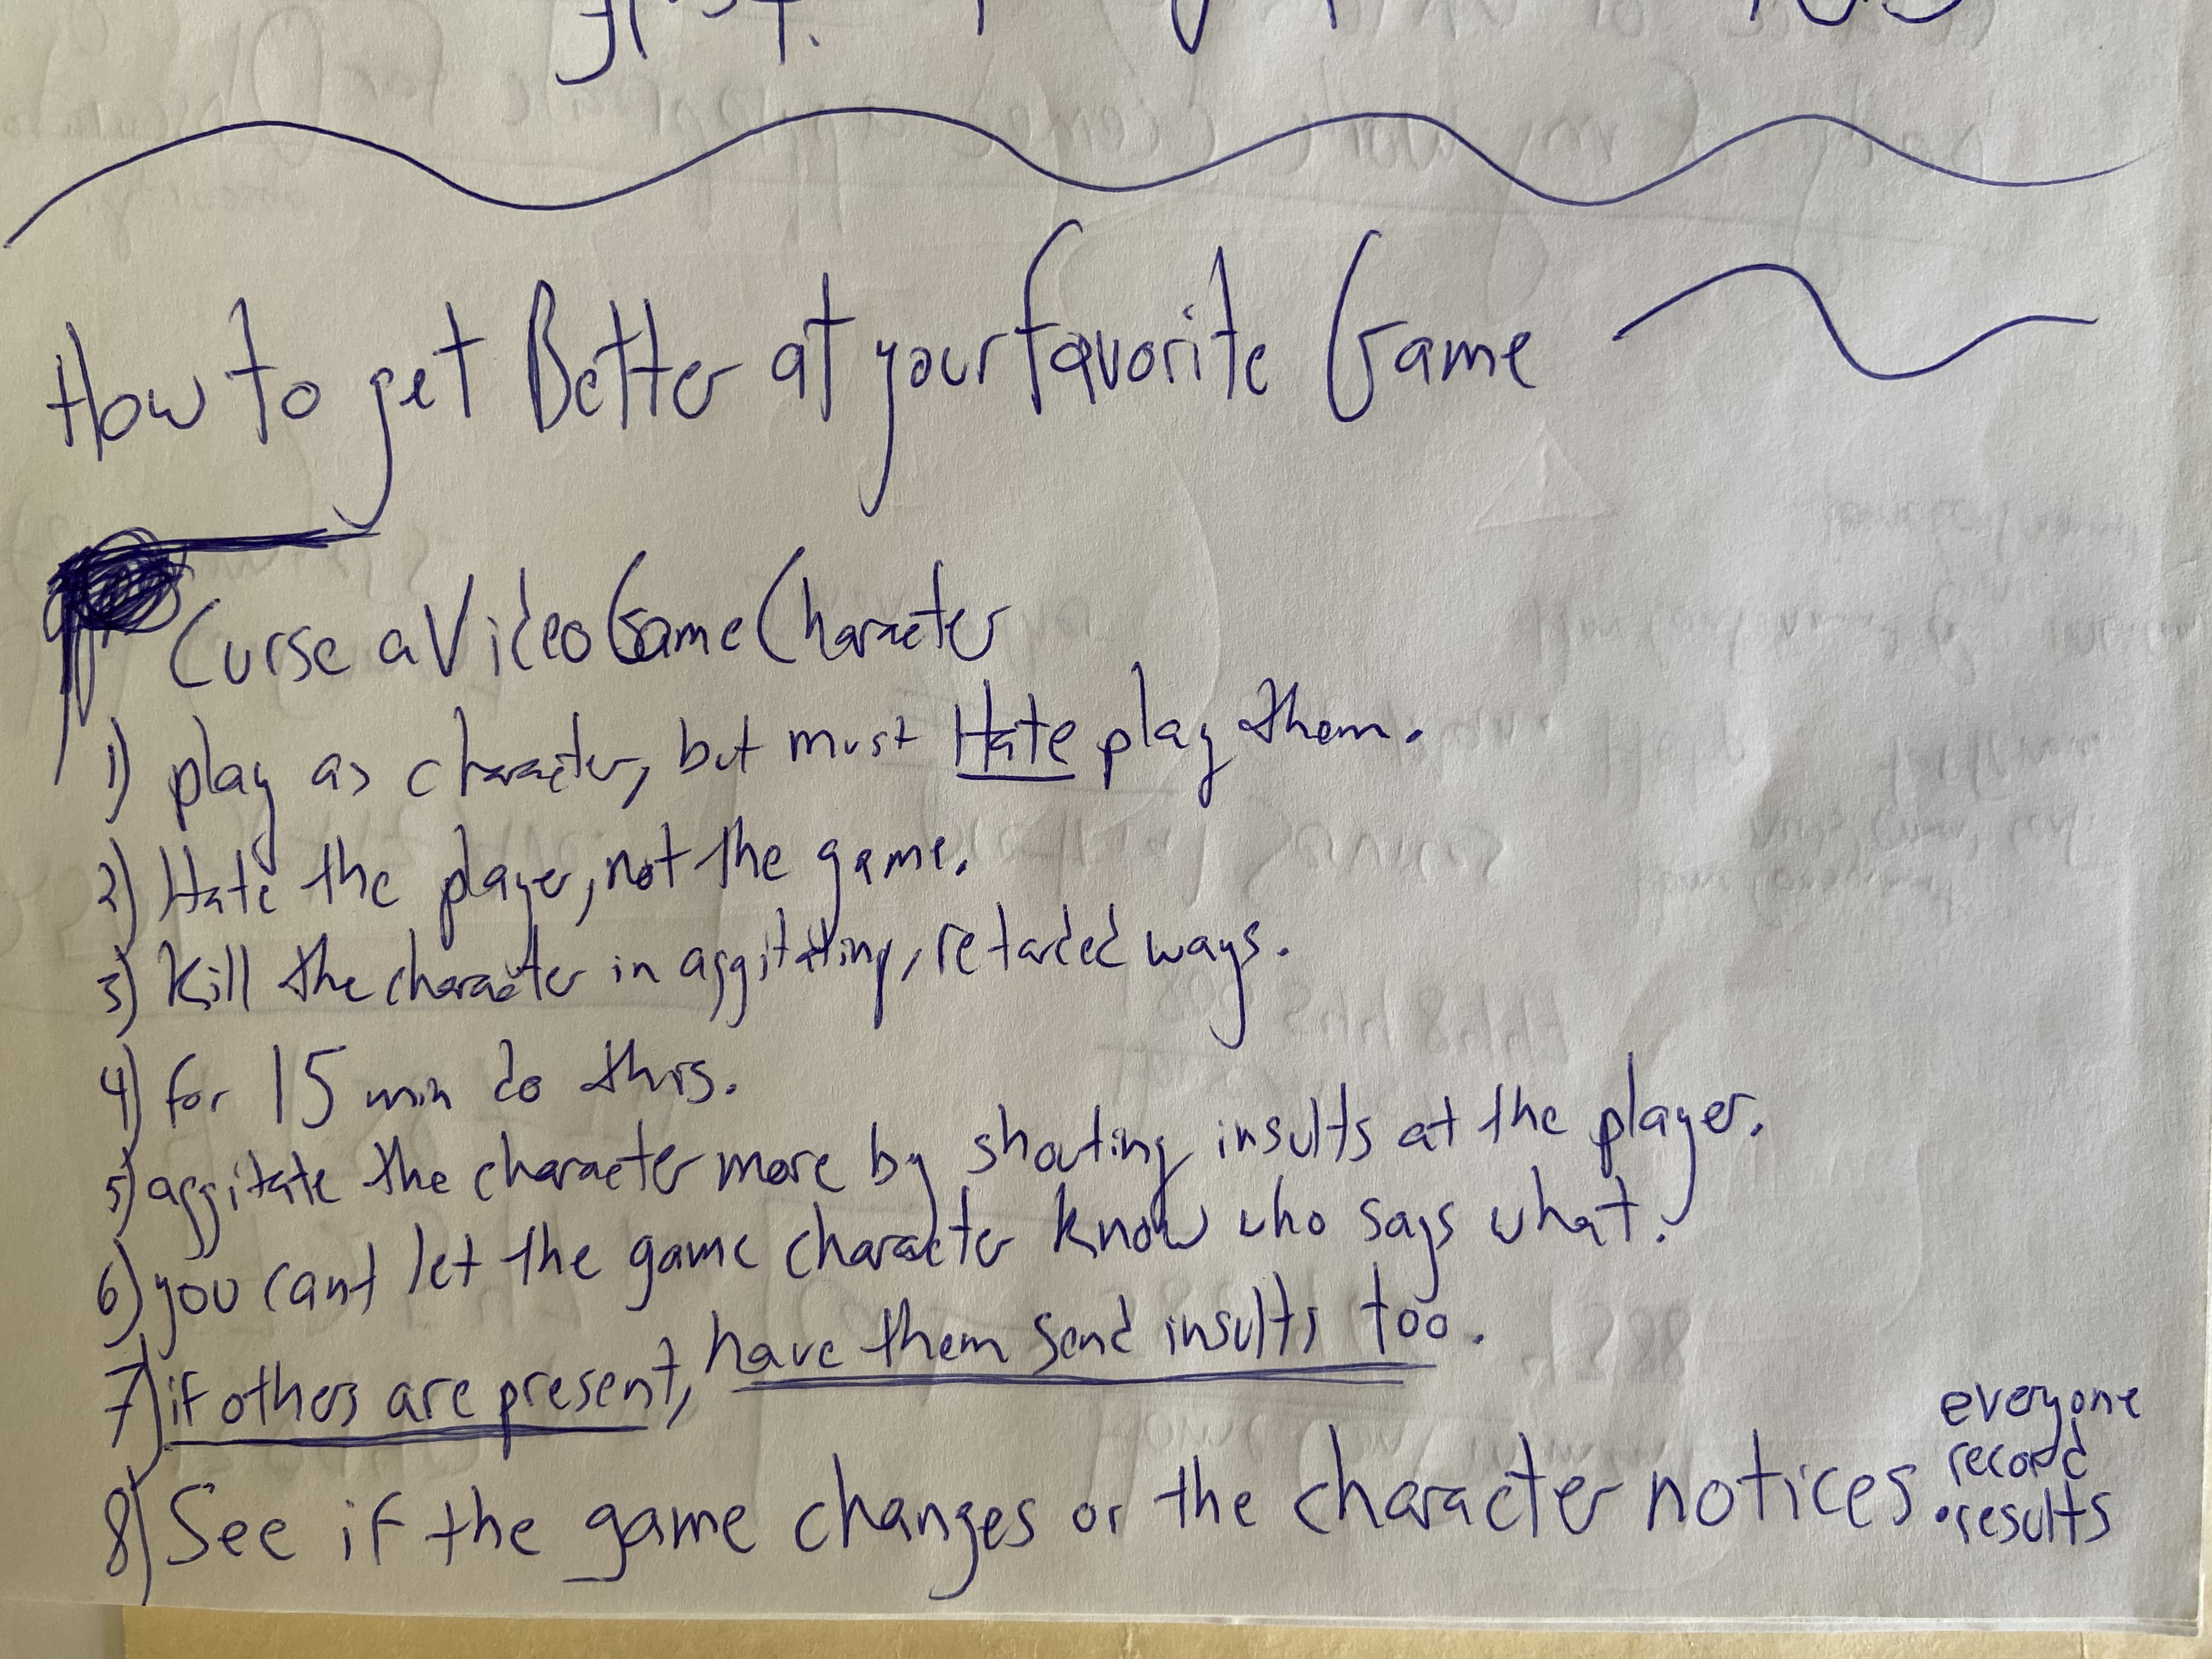 How to get Better at your favorite Game
Curse a Video Game Character
1) play as character, but must Hate play them.
2) Hate the player, not the game.
3) Kill the character in aggitating, retarded ways.
4) for 15 min do this.
5) aggitate the character more by shouting insults at the player.
6) you cant let the game character know who says what.
7) if others are present, have them send insults too.
8) See if the game changes or the character notices.
everyone
record
results